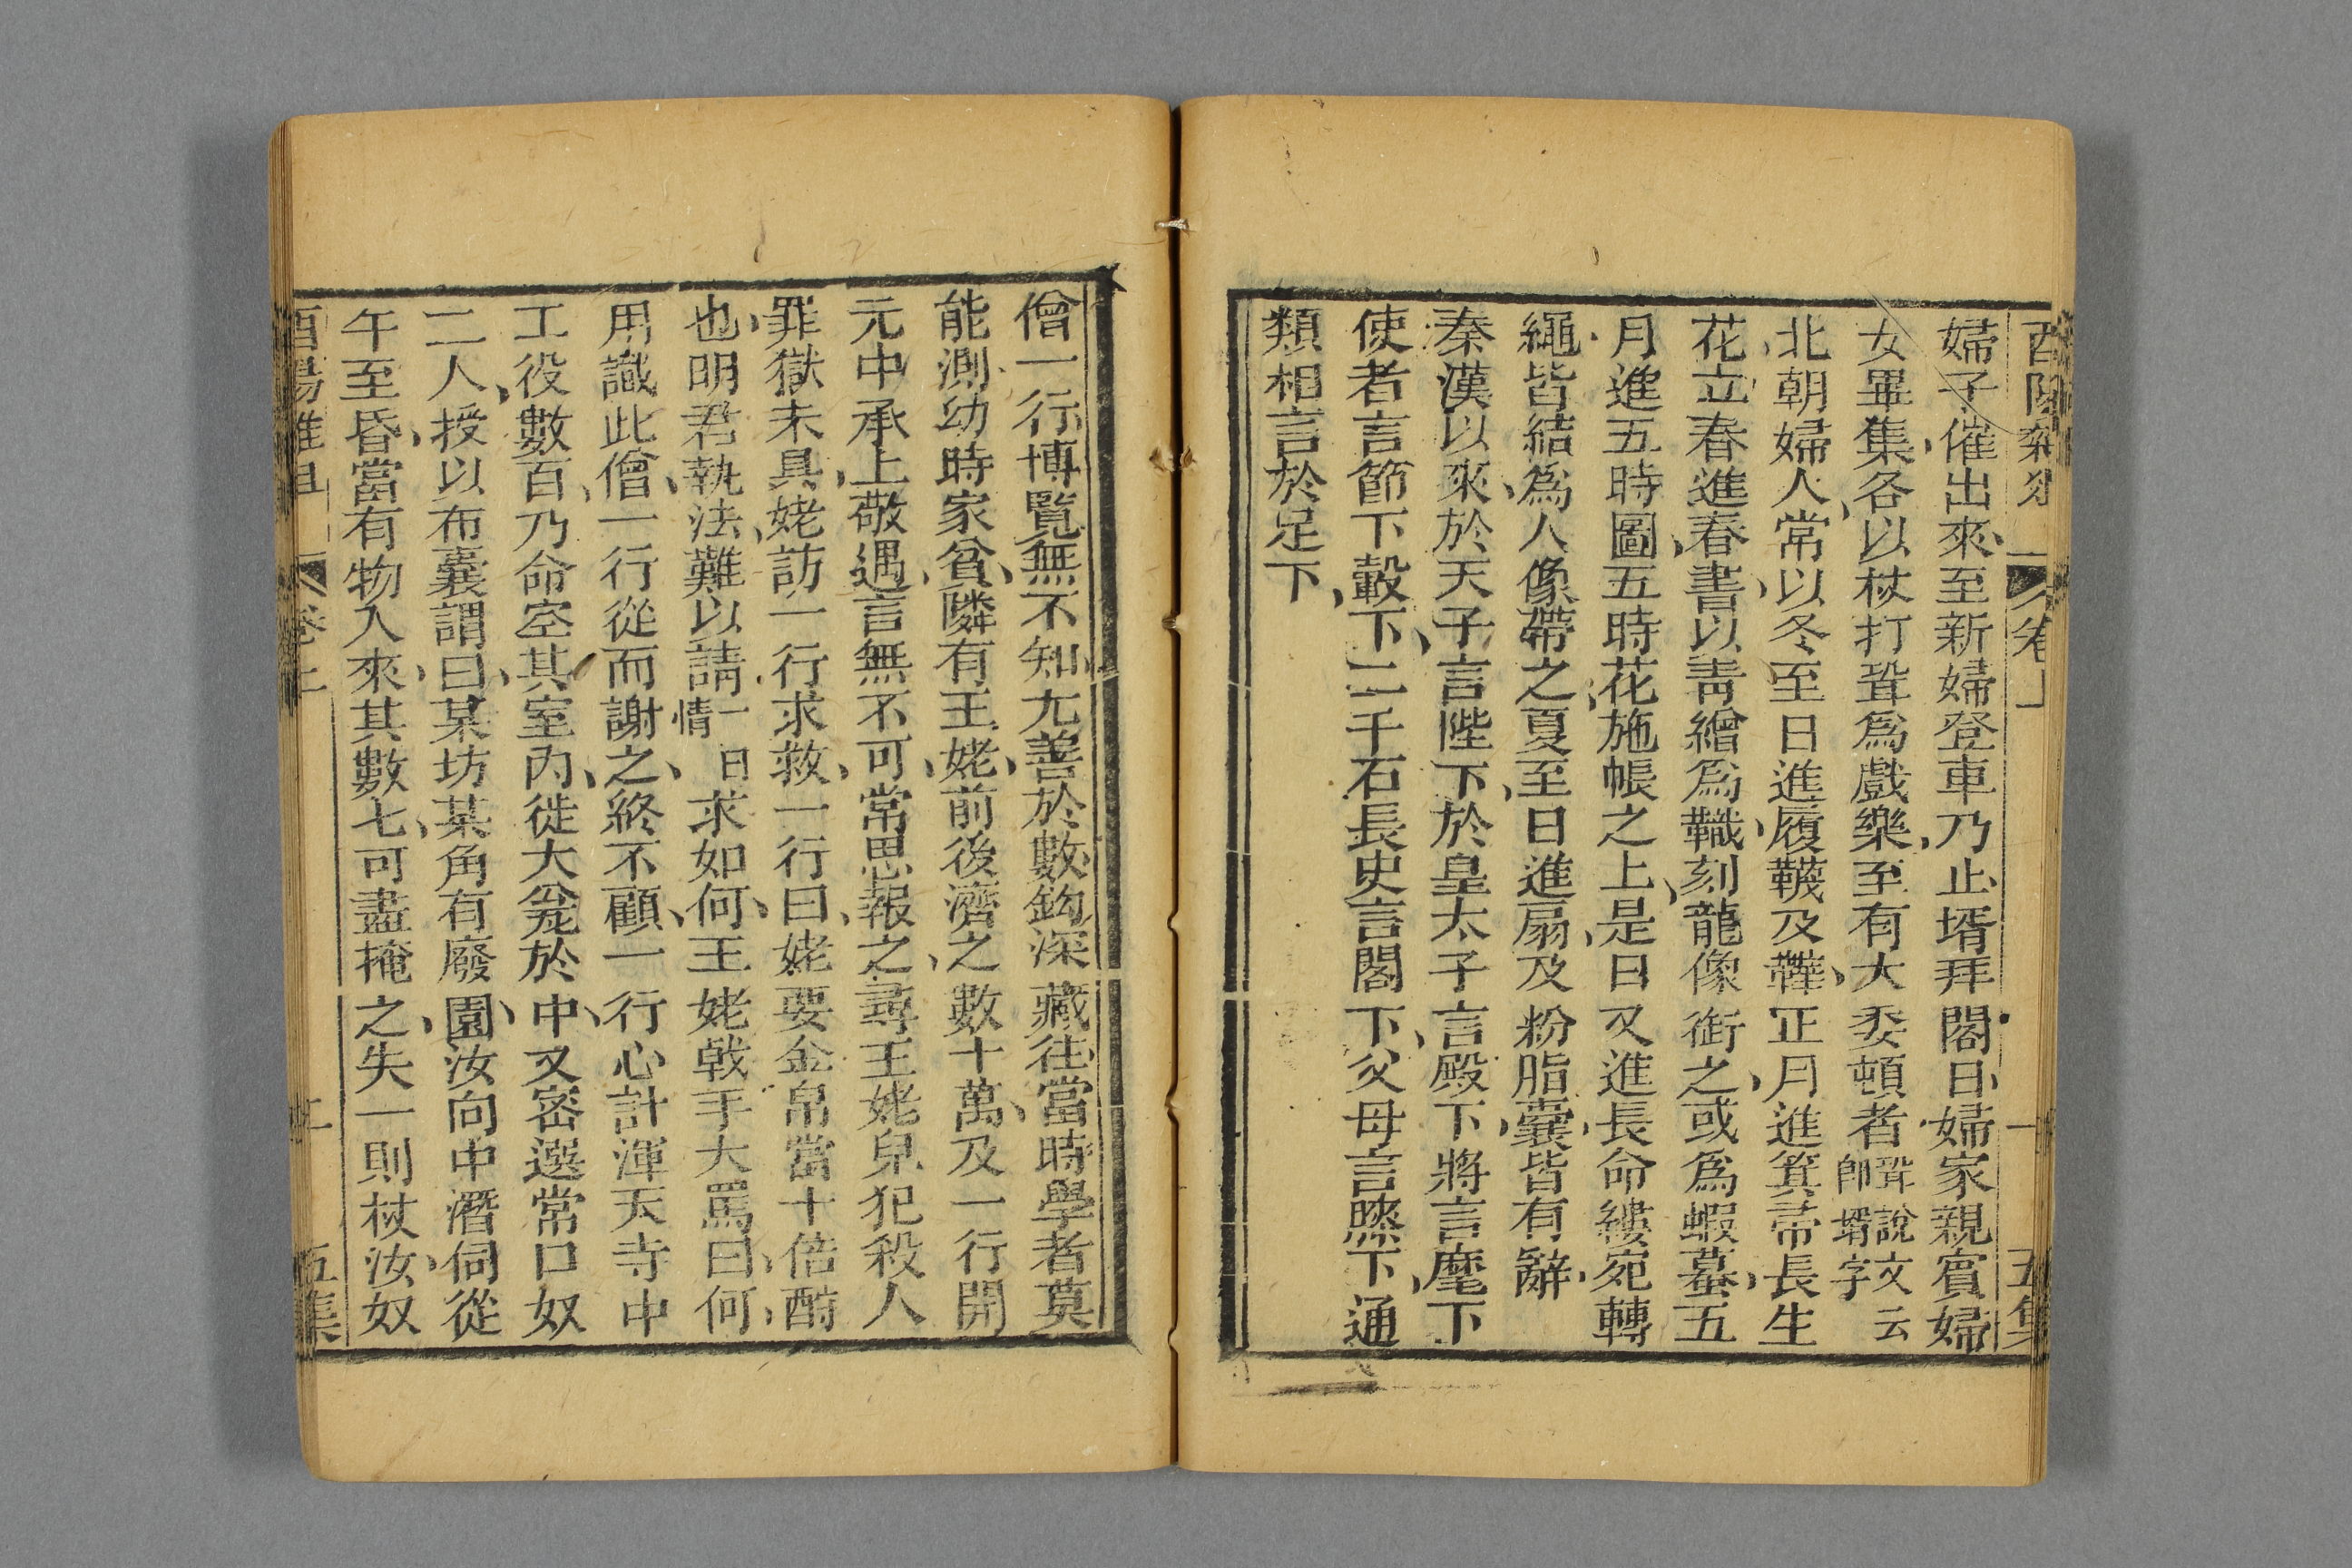 婦子催出來至新婦登車乃止壻拜閣日婦家親賓婦
女畢集各以杖打聟爲戲樂至有大委頓者聟說文云卽壻字
北朝婦人常以冬至日進履韈及鞾正月進箕帚長生
花立春進春書以靑繒爲幟刻龍像銜之或爲蝦蟇五
月進五時圖五時花施帳之上是日又進長命縷宛轉
繩皆結爲人像帶之夏至日進扇及粉脂囊皆有辭
秦漢以來於天子言陛下於皇太子言殿下將言麾下
使者言節下轂下二千石長史言閣下父母言膝下通
類相言於足下
僧一行博覽無不知尤善於數鈎深藏往當時學者莫
能測幼時家貧隣有王姥前後濟之數十萬及一行開
元中承上敬遇言無不可常思報之尋王姥兒犯殺人
罪獄未具姥訪一行求救一行曰姥要金帛當十倍酧
也明君執法難以請一日情求如何王姥戟手大罵曰何
用識此僧一行從而謝之終不顧一行心計渾天寺中
工役數百乃命空其室內徙大瓮於中又密選常口奴
二人授以布囊謂曰某坊某角有廢園汝向中潛伺從
午至昏當有物入來其數七可盡掩之失一則杖汝奴
卷上
五集